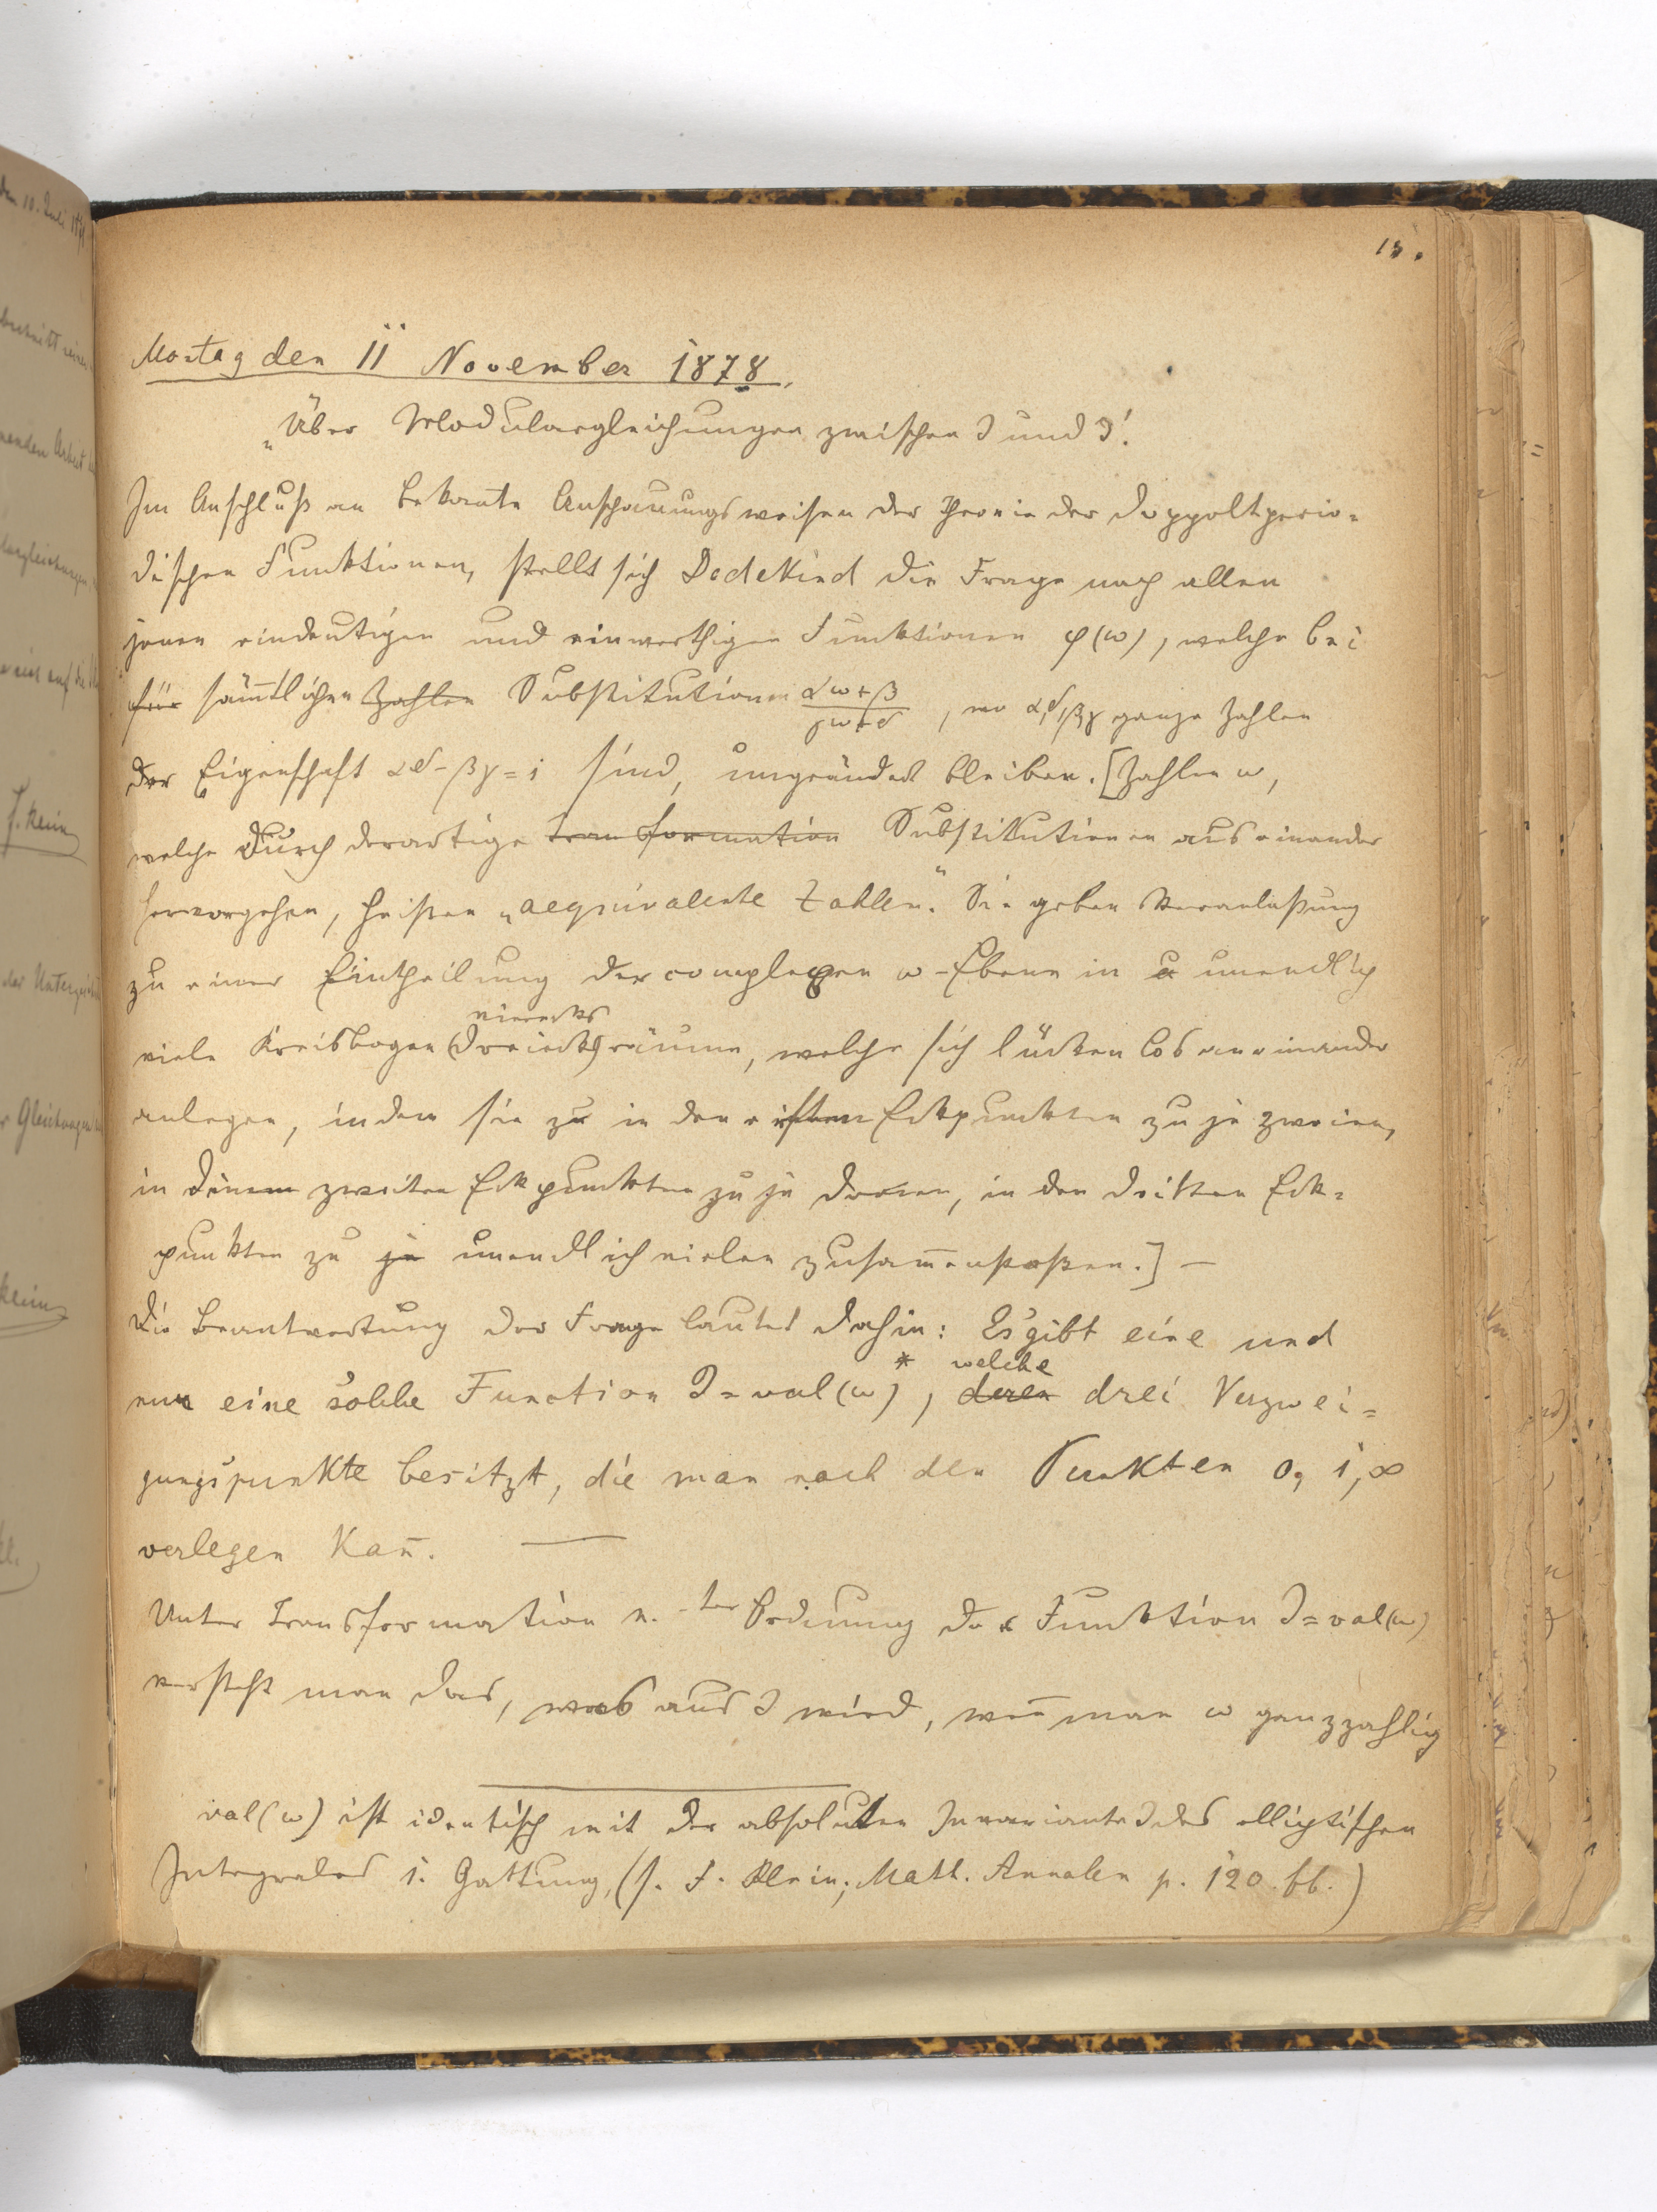 15.
Montag den 11 November 1878.
„Über Modulargleichungen zwischen J und J'.
Im Anschluß an bekan̅te Anschauungsweisen der Theorie der doppeltperio=
dischen Funktionen, stellt sich Dedekind die Frage nach allen
jenen eindeutigen und einwerthigen Funktionen φ(ω), welche bei
für säm̅tlichen Zahlen Substitutionen (αω+β)/(γω+δ), wo α,δ,β,γ ganze Zahlen
der Eigenschaft αδ-βγ=1 sind, ungeändert bleiben. [Zahlen ω,
welche durch derartige transformation Substitutionen aus einander
hervorgehen, heißen „aequivalente Zahlen." Sie geben Veranlaßung
zu einer Eintheilung der complexen ω-Ebene in u unendlich
vierecks
viele Kreisbogen(dreiecks)räume, welche sich lückenlos an einander
anlegen, indem sie zu in den ersten Eckpunckten zu je zweien,
in denen zweiten Eckpunckten zu je dreien, in den dritten Eck=
punkten zu je unendlich vielen zusam̅enstoßen.] —
Die Beantwortung der Frage lautet dahin: Es gibt eine und
* welche
nur eine solche Function J=val(ω), deren drei Verzwei=
gungspunkte besitzt, die man nach den Punkten 0, 1, ∞
verlegen kan̅. —
Unter Transformation n.-ter Ordnung der Funktion J=val(ω)
versteht man das, was aus J wird, wen̅ man ω ganzzahlig
val(ω) ist identisch mit der absoluten Invariante J des elliptischen
Integrales 1. Gattung, (s. F. Klein; Math. Annalen p. 120. ff.)